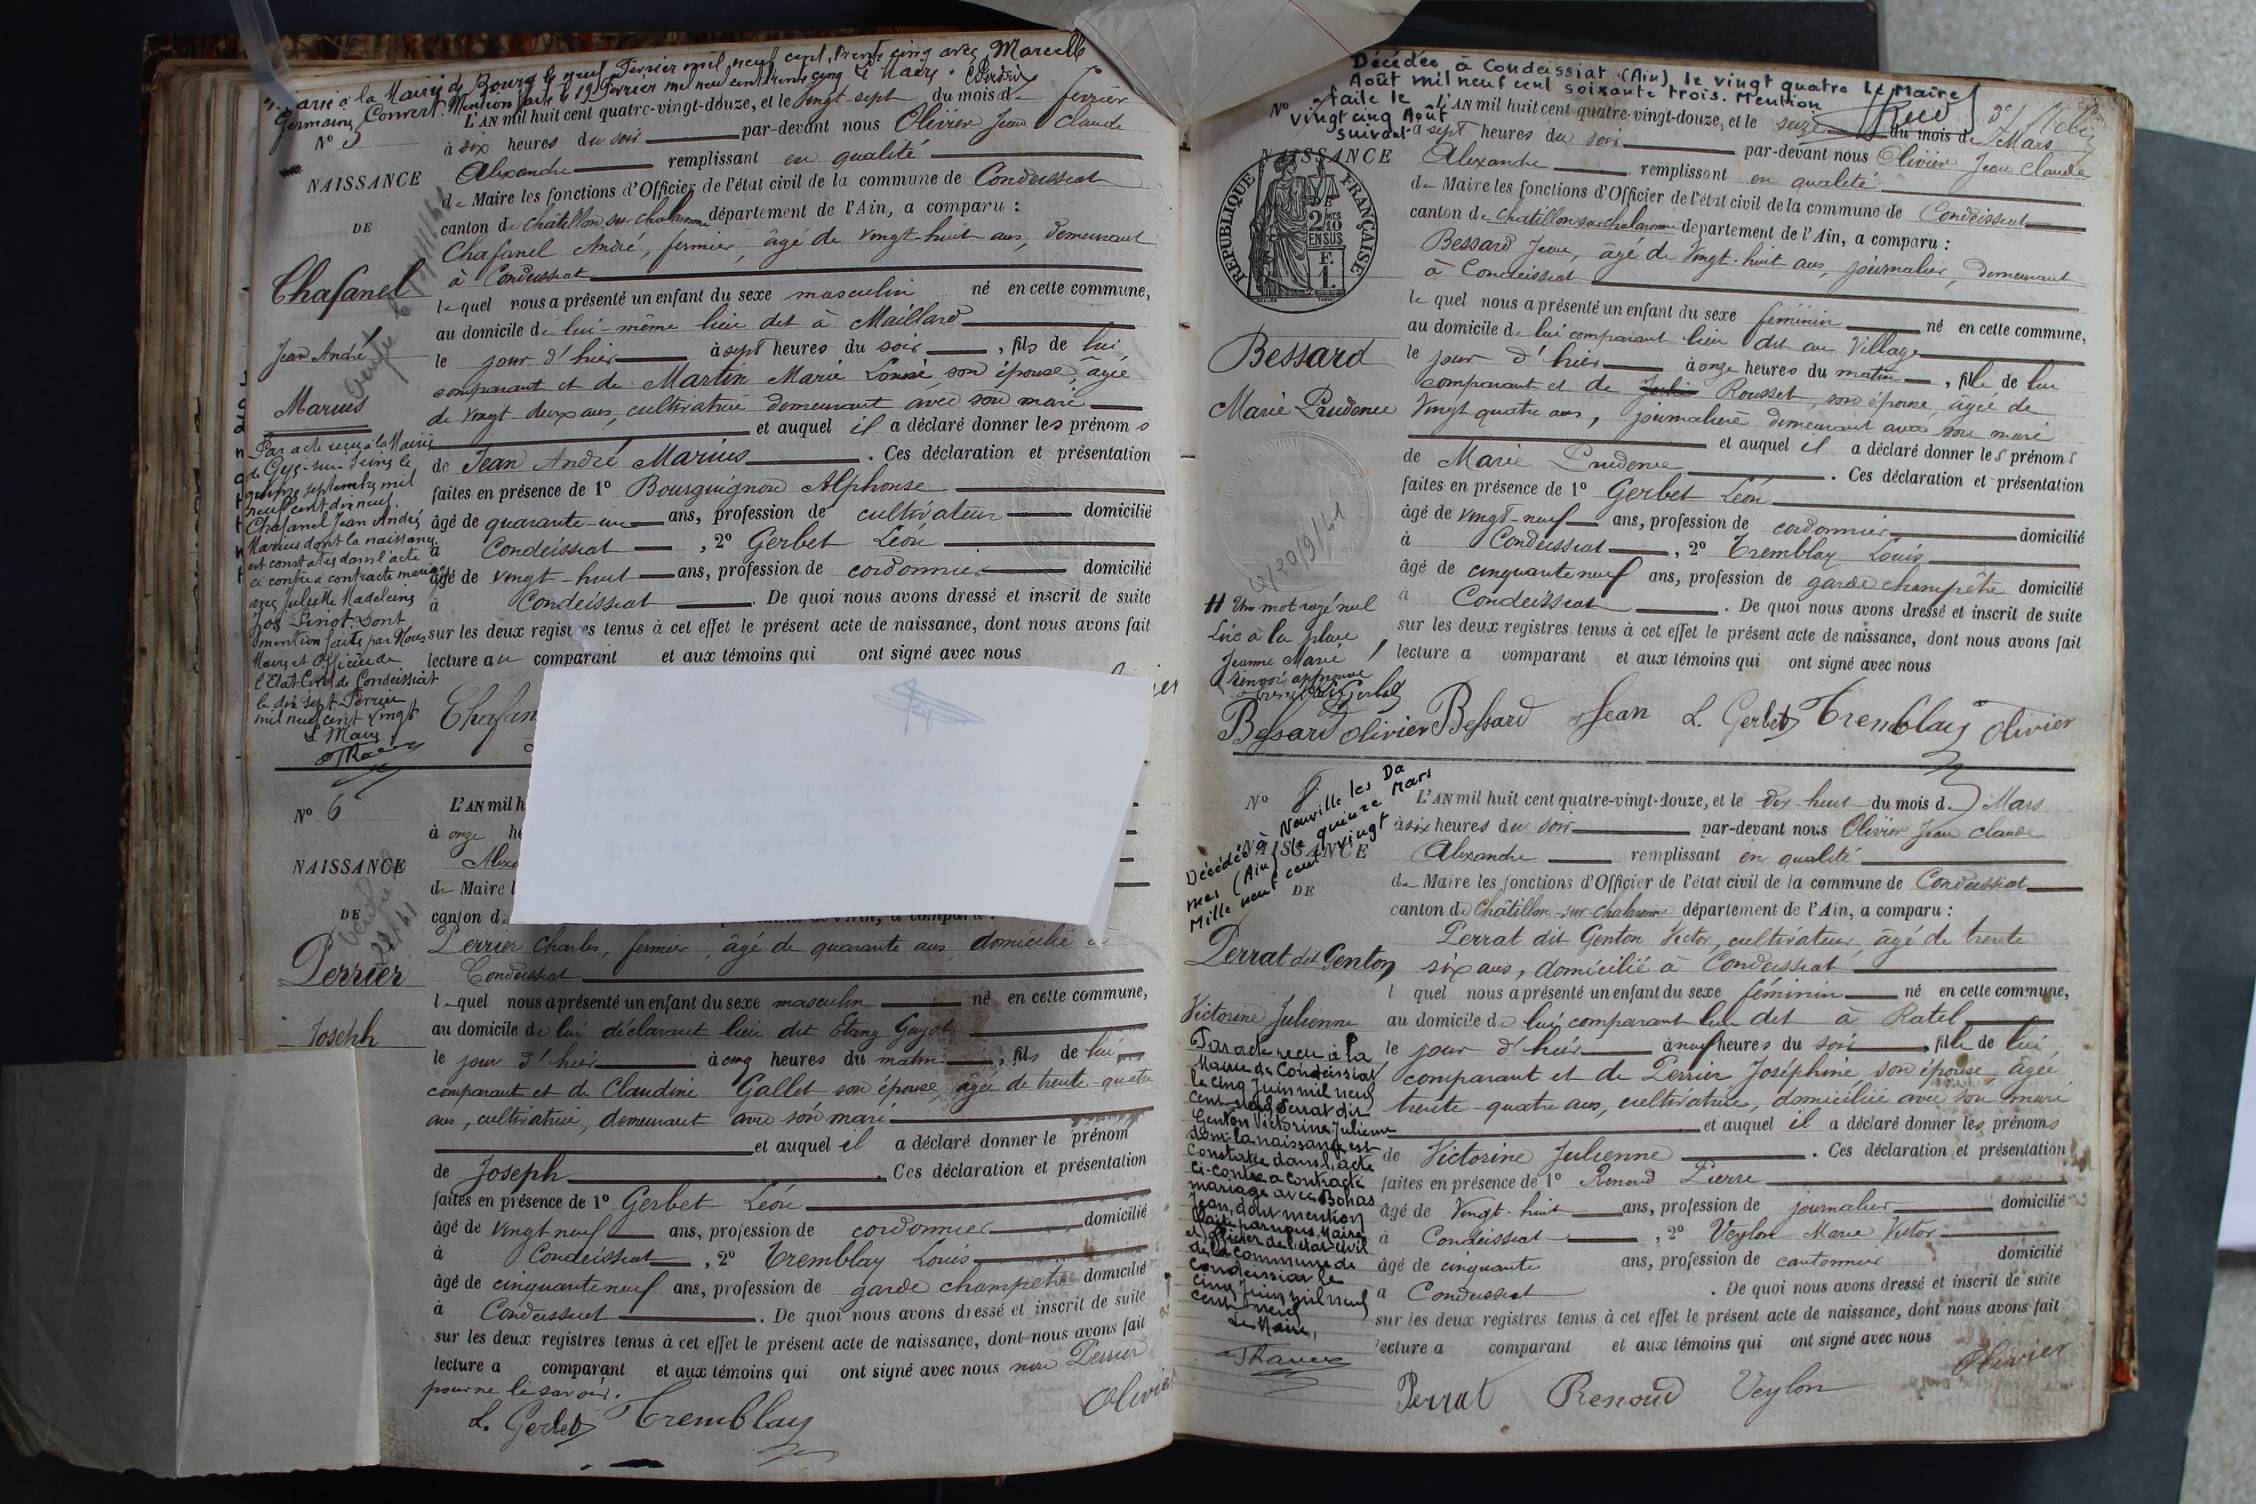 Marié à la Mairie de Bourg le neuf Février mil neuf cent trente cinq avec Marcelle
Germaine Convert. Mention faite le 19 Février mil neuf cent trente cinq Le Maire.
N° 5
L'AN mil huit cent quatre-vingt-douze, et le vingt-sept du mois de février
à six heures du soir par-devant nous Olivier Jean Claude
Alexandre remplissant en qualité
de Maire les fonctions d'Officier de l'état civil de la commune de Condeissiat
canton de Châtillon sur Chalaronne département de l'Ain, a comparu :
NAISSANCE
DE
Chafanel
Jean André
Marius
Chafanel André, fermier, âgé de vingt-huit ans, demeurant
à Condeissiat
lequel nous a présenté un enfant du sexe masculin né en cette commune,
au domicile de lui-même lieu dit à Maillard
le jour d'hier à sept heures du soir, fils de lui
comparant et de Martin Marie Louise son épouse, âgée
de vingt deux ans, cultivatrice demeurant avec son mari
et auquel il a déclaré donner les prénoms
de Jean André Marius. Ces déclaration et présentation
faites en présence de 1° Bourguignon Alphonse
âgé de quarante-un ans, profession de cultivateur domicilié
à Condeissiat, 2° Gerbet Léon
âgé de vingt-huit ans, profession de cordonnier domicilié
à Condeissiat. De quoi nous avons dressé et inscrit de suite
sur les deux registres tenus à cet effet le présent acte de naissance, dont nous avons fait
lecture au comparant et aux témoins qui ont signé avec nous
Chafan
Par acte reçu à la Mairie
de Gyé-sur-Seine le
quinze septembre mil
neuf cent dix neuf.
Chafanel Jean André
Marius dont la naissance
est constatée dans l'acte
ci contre a contracté mariage
avec Juliette Madeleine
Pinot. Dont
mention faite par Nous
Maire et Officier de
l'Etat Civil de Condeissiat
le dix sept Février
mil neuf cent vingt
Le Maire
N° 6
L'AN mil h
à onze he
Alexa
de Maire l
canton d
NAISSANCE
DE
Perrier
Joseph
Perrier Charles, fermier, âgé de quarante ans, domicilié à
Condeissiat
lequel nous a présenté un enfant du sexe masculin né en cette commune,
au domicile de lui déclarant lieu dit Etang Guyot
le jour d'hier à cinq heures du matin, fils de lui
comparant et de Claudine Gallet son épouse, âgée de trente-quatre
ans, cultivatrice, demeurant avec son mari
et auquel il a déclaré donner le prénom
de Joseph. Ces déclaration et présentation
faites en présence de 1° Gerbet Léon
âgé de vingt neuf ans, profession de cordonnier domicilié
à Condeissiat, 2° Tremblay Louis
âgé de cinquante neuf ans, profession de garde champêtre domicilié
à Condeissiat. De quoi nous avons dressé et inscrit de suite
sur les deux registres tenus à cet effet le présent acte de naissance, dont nous avons fait
lecture a comparant et aux témoins qui ont signé avec nous non Perrier
pour ne le savoir.
L. Gerbet Tremblay Olivier
Décédée à Condeissiat (Ain) le vingt quatre Le Maire
Août mil neuf cent soixante trois. Mention
faite le
vingt cinq Août
suivant
N° 7
L'AN mil huit cent quatre-vingt-douze, et le seize du mois de Mars
à sept heures du soir par-devant nous Olivier Jean Claude
Alexandre remplissant en qualité
de Maire les fonctions d'Officier de l'état civil de la commune de Condeissiat
canton de Châtillon sur Chalaronne département de l'Ain, a comparu :
NAISSANCE
RÉPUBLIQUE FRANÇAISE
2 10MES EN SUS
F. 1.
Bessard
Marie Prudence
Bessard Jean, âgé de vingt-huit ans, journalier, demeurant
à Condeissiat
lequel nous a présenté un enfant du sexe féminin né en cette commune,
au domicile de lui comparant lieu dit au Village
le jour d'hier à onze heures du matin, fille de lui
comparant et de Julie Rousset, son épouse, âgée de
vingt quatre ans, journalière demeurant avec son mari
et auquel il a déclaré donner les prénoms
de Marie Prudence. Ces déclaration et présentation
faites en présence de 1° Gerbet Léon
âgé de vingt-neuf ans, profession de cordonnier domicilié
à Condeissiat, 2° Tremblay Louis
âgé de cinquante neuf ans, profession de garde champêtre domicilié
à Condeissiat. De quoi nous avons dressé et inscrit de suite
sur les deux registres tenus à cet effet le présent acte de naissance, dont nous avons fait
lecture a comparant et aux témoins qui ont signé avec nous
20/9/41
Un mot rayé nul
Lire à la place
Jeanne Marie
Renvoi approuvé
Bessard Olivier Bessard Jean L. Gerbet Tremblay Olivier
Décédée à Neuville les Da
mes (Ain) le quinze Mars
Mille neuf cent vingt
N° 8
L'AN mil huit cent quatre-vingt-douze, et le dix-huit du mois de Mars
à six heures du soir par-devant nous Olivier Jean Claude
Alexandre remplissant en qualité
de Maire les fonctions d'Officier de l'état civil de la commune de Condeissiat
canton de Châtillon-sur-Chalaronne département de l'Ain, a comparu :
NAISSANCE
DE
Perrat dit Genton
Victorine Julienne
Perrat dit Genton Victor, cultivateur, âgé de trente
six ans, domicilié à Condeissiat
l quel nous a présenté un enfant du sexe féminin né en cette commune,
au domicile de lui comparant lieu dit à Ratel
le jour d'hier à neuf heures du soir, fille de lui
comparant et de Perrier Joséphine son épouse, âgée
trente-quatre ans, cultivatrice, domiciliée avec son mari
et auquel il a déclaré donner les prénoms
de Victorine Julienne. Ces déclaration et présentation
faites en présence de 1° Renoud Pierre
âgé de vingt-huit ans, profession de journalier domicilié
à Condeissiat, 2° Veylon Marie Victor
âgé de cinquante ans, profession de cantonnier domicilié
à Condeissiat. De quoi nous avons dressé et inscrit de suite
sur les deux registres tenus à cet effet le présent acte de naissance, dont nous avons fait
lecture a comparant et aux témoins qui ont signé avec nous
Par acte reçu à la
Mairie de Condeissiat
le cinq Juin mil neuf
cent neuf Perrat dit
Genton Victorine Julienne
dont la naissance est
constatée dans l'acte
ci-contre a contracté
mariage avec Bohas
Jean, dont mention
faite par nous, Maire
et officier de l'état civil
de la commune de
Condeissiat le
cinq Juin mil neuf
cent neuf
Le Maire,
Perrat Renoud Veylon Olivier